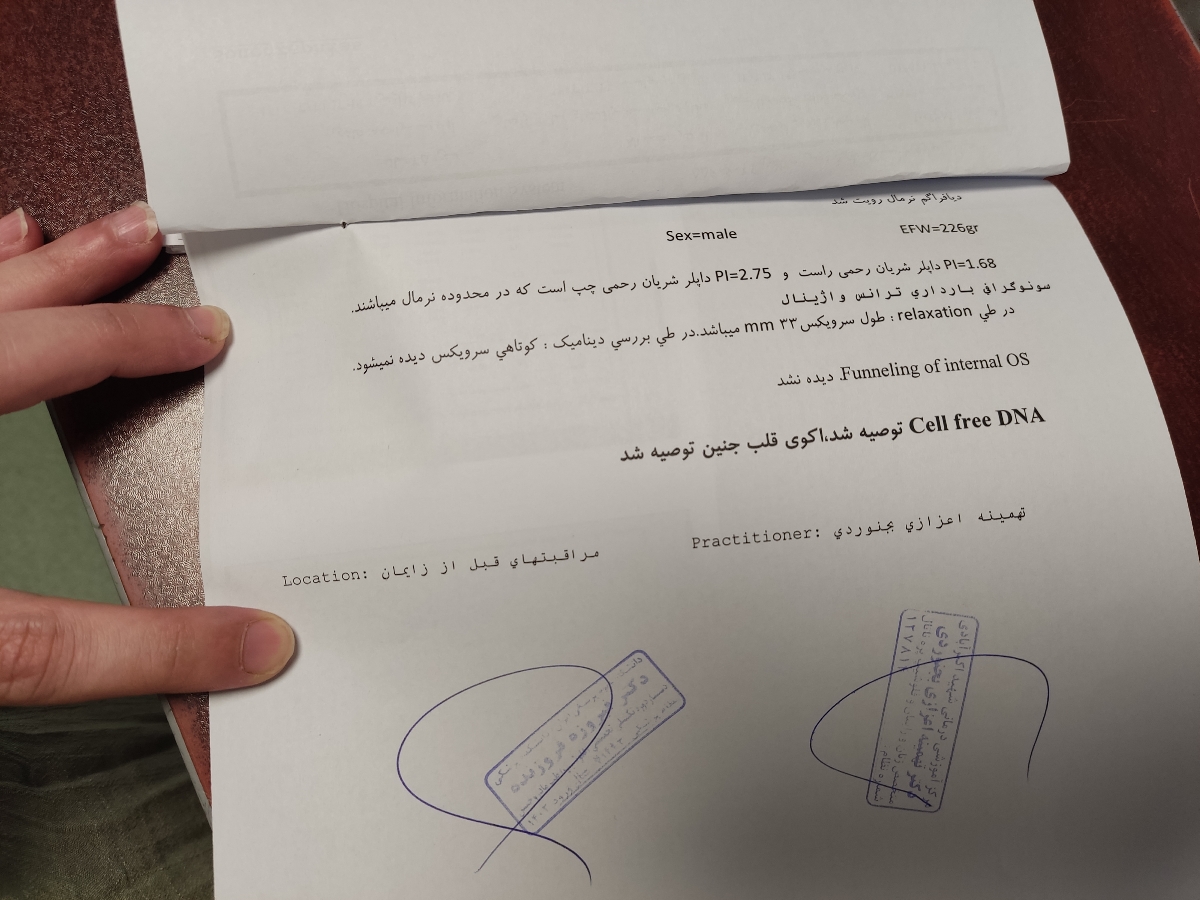 دیافراگم نرمال رویت شد
EFW=226gr Sex=male
PI=1.68 داپلر شریان رحمی راست و PI=2.75 داپلر شریان رحمی چپ است که در محدوده نرمال میباشند.
سونوگرافي بارداري ترانس واژينال
در طي relaxation : طول سرویکس ۳۳ mm میباشد.در طي بررسي دینامیک : کوتاهي سرویکس دیده نمیشود.
Funneling of internal OS. دیده نشد
Cell free DNA توصیه شد،اکوی قلب جنین توصیه شد
Practitioner: تهمينه اعزازي بجنوردي
Location: مراقبتهاي قبل از زايمان
مرکز آموزشی درمانی شهید اکبرآبادی
دکتر تهمینه اعزازی بجنوردی
دکتر فیروزه فروزنده